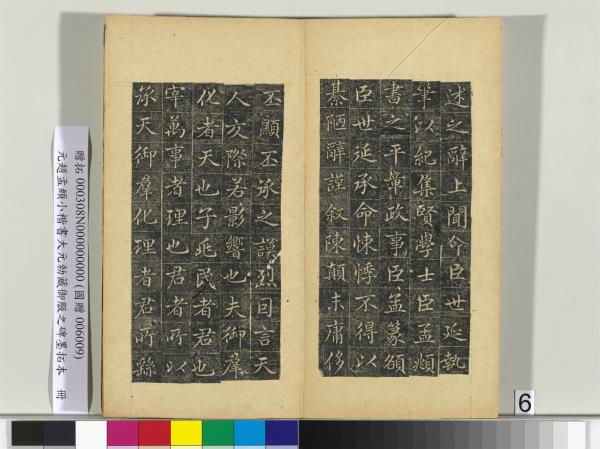 述之辭上聞命臣世延執
筆以紀集賢學士臣孟頫
書之平章政事臣孟篆額
臣世延承命悚悸不得以
綦陋辭謹叙陳顛末庸侈
丕顯丕承之謨烈回言天
人交際若影響也夫御羣
化者天也子兆民者君也
宰萬事者理也君者所以
承天御羣化理者君所繇
贈拓 000308N000000000 (國贈 006009)
元趙孟頫小楷書大元勅藏御服之碑墨拓本 冊
6